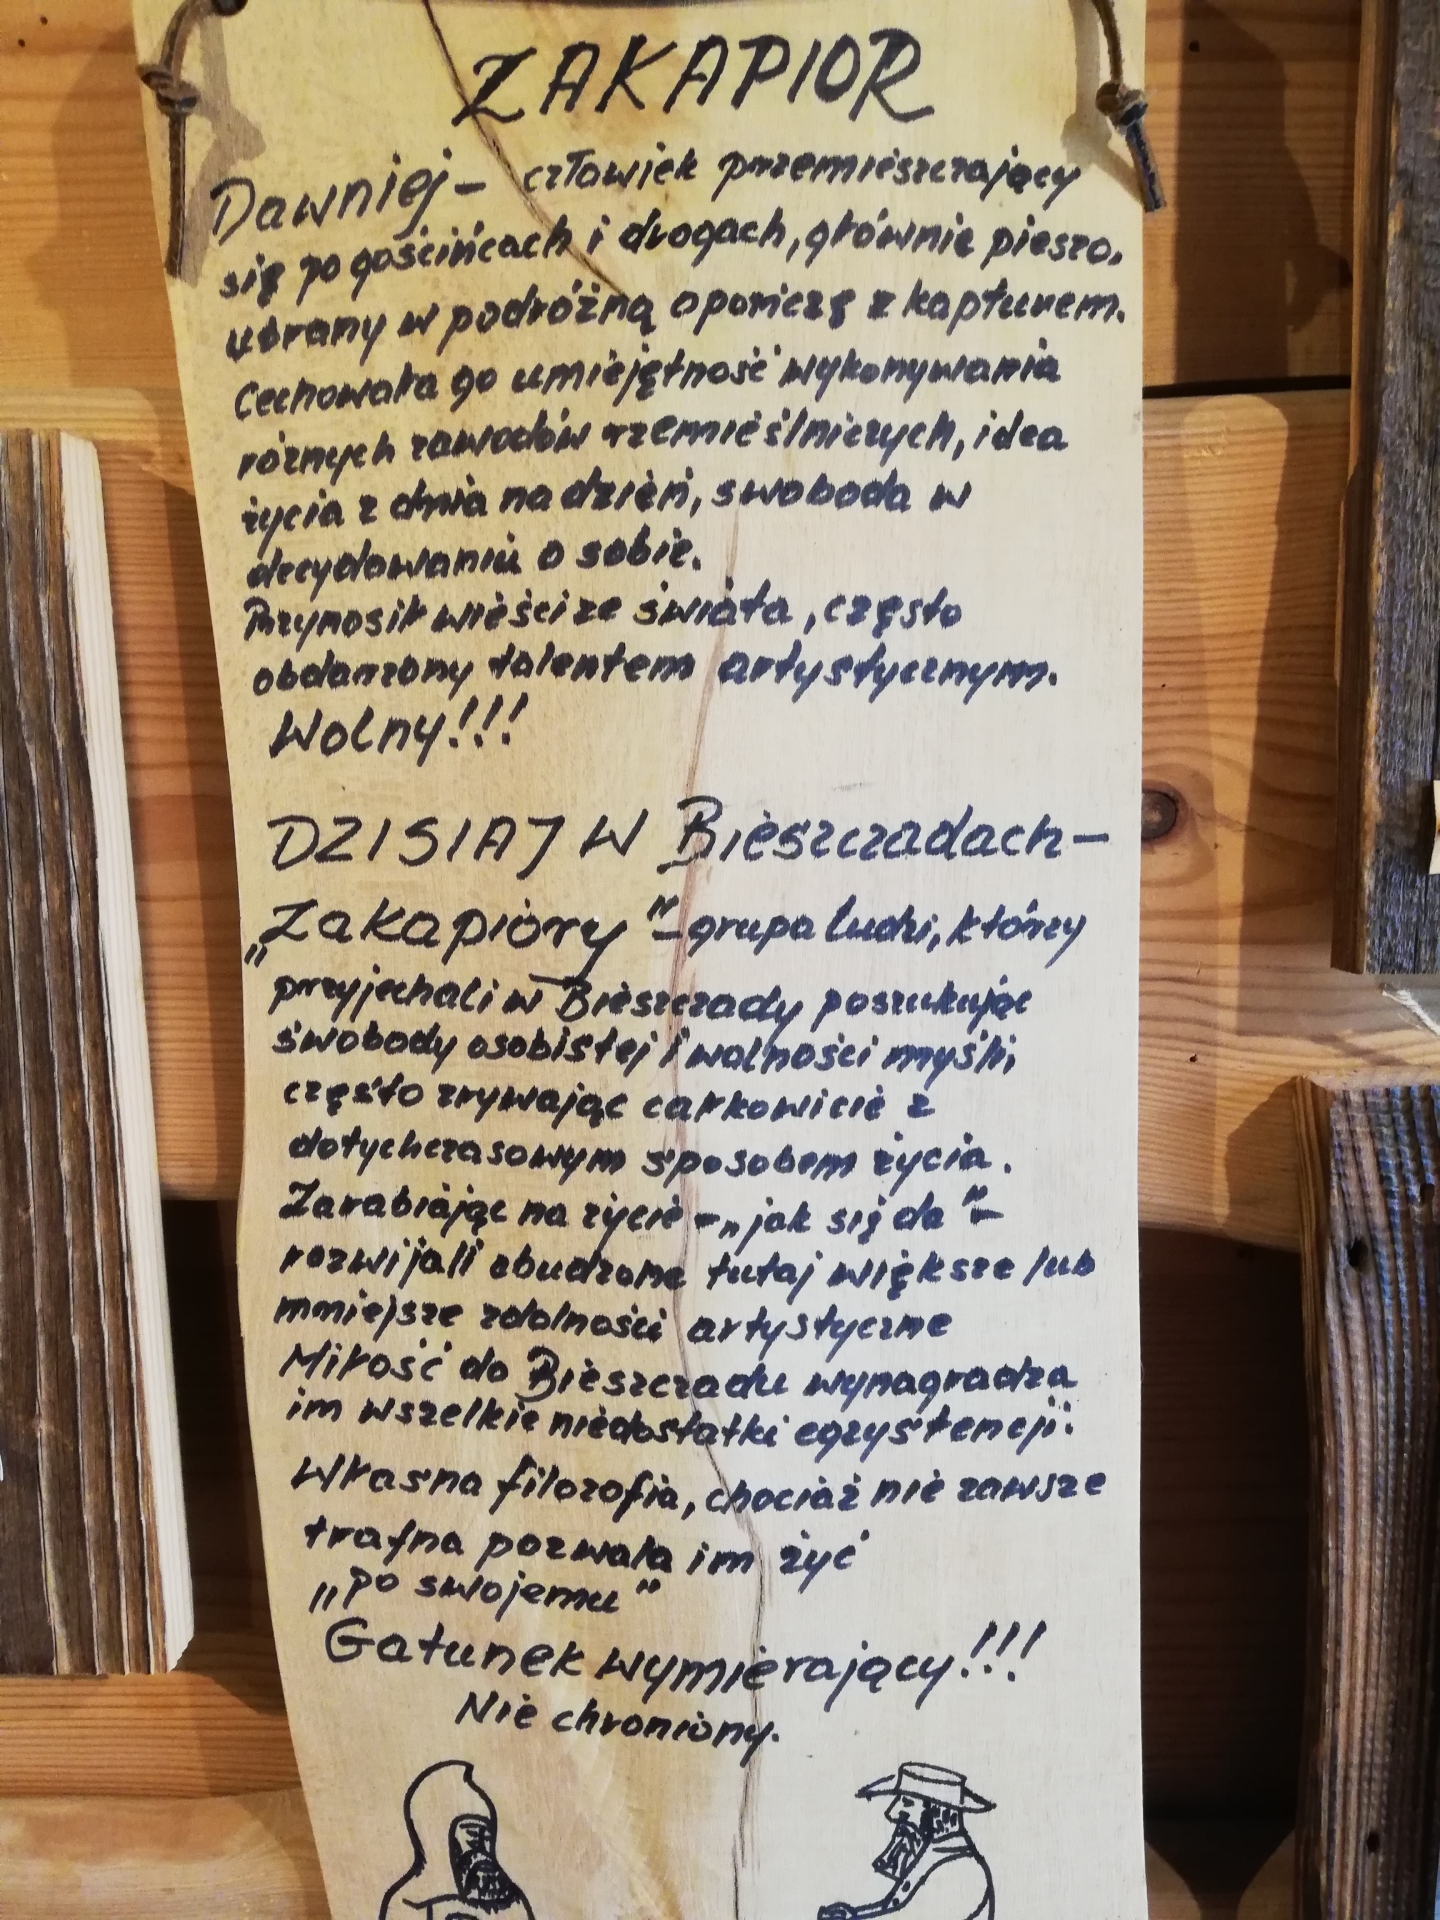 ZAKAPIOR
Dawniej - człowiek przemieszczający
się po gościńcach i drogach, głównie pieszo.
ubrany w podróżną opończę z kapturem.
Cechowała go umiejętność wykonywania
róznych zawodów rzemieślniczych, idea
życia z dnia na dzień, swoboda w
decydowaniu o sobie.
Przynosił wieści ze świata, często
obdarzony talentem artystycznym.
Wolny!!!
DZISIAJ W Bieszczadach-
„Zakapiory" - grupa ludzi, którzy
przyjechali w Bieszczady poszukując
swobody osobistej i wolności myśli,
często zrywając całkowicie z
dotychczasowym sposobem życia.
Zarabiając na życie - „jak się da" -
rozwijali obudzone tutaj większe lub
mniejsze zdolności artystyczne
Miłość do Bieszczadu wynagradza
im wszelkie niedostatki egzystencji.
Własna filozofia, chociaż nie zawsze
trafna pozwala im żyć
„po swojemu"
Gatunek wymierający!!!
Nie chroniony.